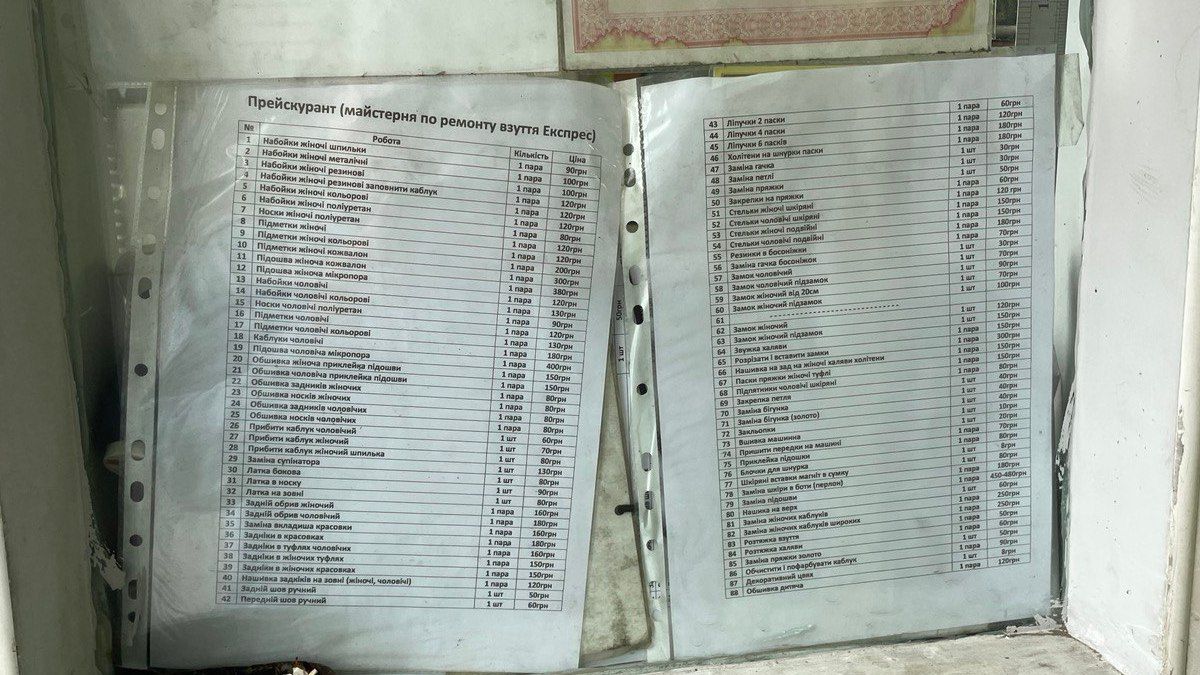 Прейскурант (майстерня по ремонту взуття Експрес)
№ Робота Кількість Ціна
1 Набойки жіночі шпильки 1 пара 90грн
2 Набойки жіночі металічні 1 пара 100грн
3 Набойки жіночі резинові 1 пара 100грн
4 Набойки жіночі резинові заповнити каблук 1 пара 120грн
5 Набойки жіночі кольорові 1 пара 120грн
6 Набойки жіночі поліуретан 1 пара 120грн
7 Носки жіночі поліуретан 1 пара 80грн
8 Підметки жіночі 1 пара 120грн
9 Підметки жіночі кольорові 1 пара 120грн
10 Підметки жіночі кожвалон 1 пара 200грн
11 Підошва жіноча кожвалон 1 пара 300грн
12 Підошва жіноча мікропора 1 пара 380грн
13 Набойки чоловічі 1 пара 120грн
14 Набойки чоловічі кольорові 1 пара 130грн
15 Носки чоловічі поліуретан 1 пара 90грн
16 Підметки чоловічі 1 пара 120грн
17 Підметки чоловічі кольорові 1 пара 130грн
18 Каблуки чоловічі 1 пара 180грн
19 Підошва чоловіча мікропора 1 пара 400грн
20 Обшивка жіноча приклейка підошви 1 пара 150грн
21 Обшивка чоловіча приклейка підошви 1 пара 150грн
22 Обшивка задників жіночих 1 пара 80грн
23 Обшивка носків жіночих 1 пара 80грн
24 Обшивка задників чоловічих 1 пара 80грн
25 Обшивка носків чоловічих 1 пара 80грн
26 Прибити каблук чоловічий 1 шт 60грн
27 Прибити каблук жіночий 1 шт 70грн
28 Прибити каблук жіночий шпилька 1 шт 80грн
29 Заміна супінатора 1 шт 130грн
30 Латка бокова 1 шт 80грн
31 Латка в носку 1 шт 90грн
32 Латка на зовні 1 шт 80грн
33 Задній обрив жіночий 1 пара 160грн
34 Задній обрив чоловічий 1 пара 180грн
35 Заміна вкладиша красовки 1 пара 160грн
36 Задніки в красовках 1 пара 180грн
37 Задніки в туфлях чоловічих 1 пара 160грн
38 Задніки в жіночих туфлях 1 пара 150грн
39 Задніки в жіночих красовках 1 пара 150грн
40 Нашивка задкіків на зовні (жіночі, чоловічі) 1 пара 120грн
41 Задній шов ручний 1 шт 50грн
42 Передній шов ручний 1 шт 60грн
1 шт 50грн
43 Ліпучки 2 паски 1 пара 60грн
44 Ліпучки 4 паски 1 пара 120грн
45 Ліпучки 6 пасків 1 пара 180грн
46 Холітени на шнурки паски 1 пара 180грн
47 Заміна гачка 1 шт 30грн
48 Заміна петлі 1 шт 30грн
49 Заміна пряжки 1 шт 50грн
50 Закрепки на пряжки 1 пара 60грн
51 Стельки жіночі шкіряні 1 пара 120 грн
52 Стельки чоловічі шкіряні 1 пара 150грн
53 Стельки жіночі подвійні 1 пара 150грн
54 Стельки чоловічі подвійні 1 пара 180грн
55 Резинки в босоніжки 1 пара 70грн
56 Заміна гачка босоніжок 1 шт 30грн
57 Замок чоловічий 1 шт 70грн
58 Замок чоловічий підзамок 1 шт 90грн
59 Замок жіночий від 20см 1 шт 70грн
60 Замок жіночий підзамок 1 шт 100грн
61 - - - - - - - - - - - - - - - - - - - - - - -
62 Замок жіночий 1 шт 120грн
63 Замок жіночий підзамок 1 шт 150грн
64 Звужка халяви 1 пара 300грн
65 Розрізати і вставити замки 1 пара 150грн
66 Нашивка на зад на жіночі халяви холітени 1 пара 150грн
67 Паски пряжки жіночі туфлі 1 пара 150грн
68 Підпятники чоловічі шкіряні 1 пара 80грн
69 Закрепка петля 1 шт 40грн
70 Заміна бігунка 1 шт 40грн
71 Заміна бігунка (золото) 1 шт 40грн
72 Закльопки 1 шт 10грн
73 Вшивка машинна 1 шт 20грн
74 Пришити передки на машині 1 пара 70грн
75 Приклейка підошки 1 пара 80грн
76 Блочки для шнурка 1 шт 8грн
77 Шкіряні вставки магніт в сумку 80грн
78 Заміна шкіри в боти (перлон) 1 пара 180грн
79 Заміна підошви 1 пара 450-480грн
80 Нашика на верх 1 шт 60грн
81 Заміна жіночих каблуків 1 пара 250грн
82 Заміна жіночих каблуків широких 1 пара 250грн
83 Розтяжка взуття 1 пара 50грн
84 Розтяжка халяви 1 пара 60грн
85 Заміна пряжки золото 1 шт 50грн
86 Обчистити і пофарбувати каблук 1 пара 90грн
87 Декоративний цвях 1 шт 8грн
88 Обшивка дитяча 1 пара 120грн